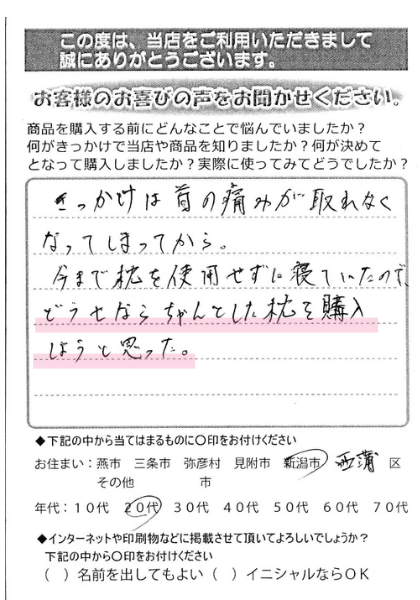 この度は、当店をご利用いただきまして
誠にありがとうございます。
お客様のお喜びの声をお聞かせください。
商品を購入する前にどんなことで悩んでいましたか？
何がきっかけで当店や商品を知りましたか？何が決めて
となって購入しましたか？実際に使ってみてどうでしたか？
きっかけは首の痛みが取れなく
なってしまってから。
今まで枕を使用せずに寝ていたので、
どうせならちゃんとした枕を購入
しようと思った。
◆下記の中から当てはまるものに〇印をお付けください
お住まい：燕市 三条市 弥彦村 見附市 新潟市 西蒲 区
その他 市
年代：１０代 ２０代 ３０代 ４０代 ５０代 ６０代 ７０代
◆インターネットや印刷物などに掲載させて頂いてよろしいでしょうか？
下記の中から〇印をお付けください
（ ）名前を出してもよい（ ）イニシャルならＯＫ